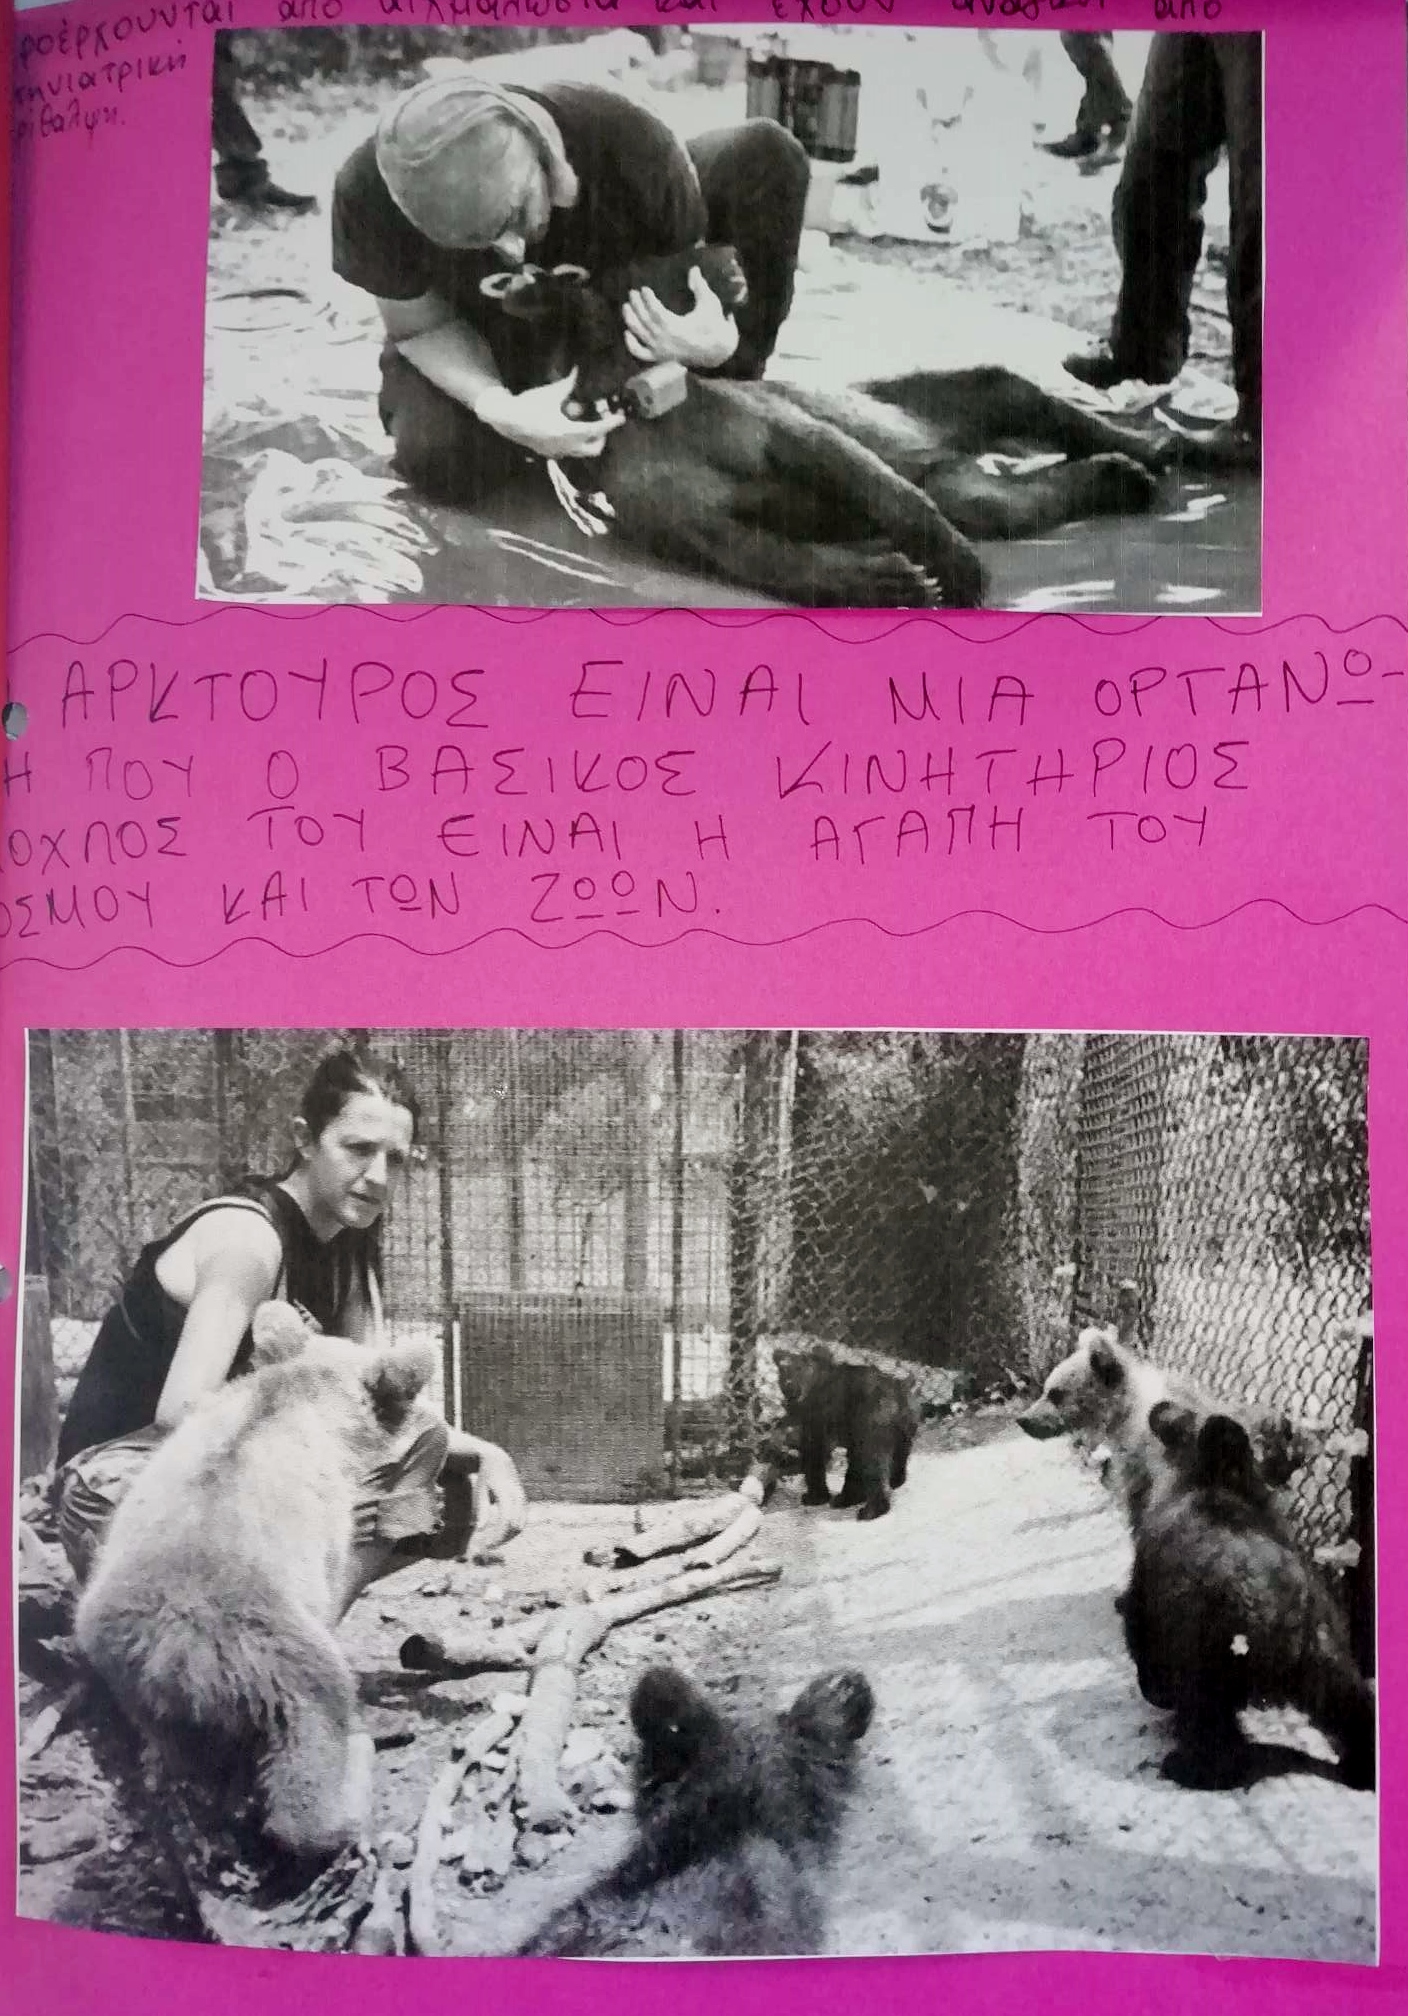 ροέρχουνται από αιχμαλωσία και έχουν ανάγκη από
τηνιατρική
ρίθαλψη.
ΑΡΚΤΟΥΡΟΣ ΕΙΝΑΙ ΜΙΑ ΟΡΓΑΝΩ-
Η ΠΟΥ Ο ΒΑΣΙΚΟΣ ΚΙΝΗΤΗΡΙΟΣ
ΟΧΛΟΣ ΤΟΥ ΕΙΝΑΙ Η ΑΓΑΠΗ ΤΟΥ
ΟΣΜΟΥ ΚΑΙ ΤΩΝ ΖΩΩΝ.